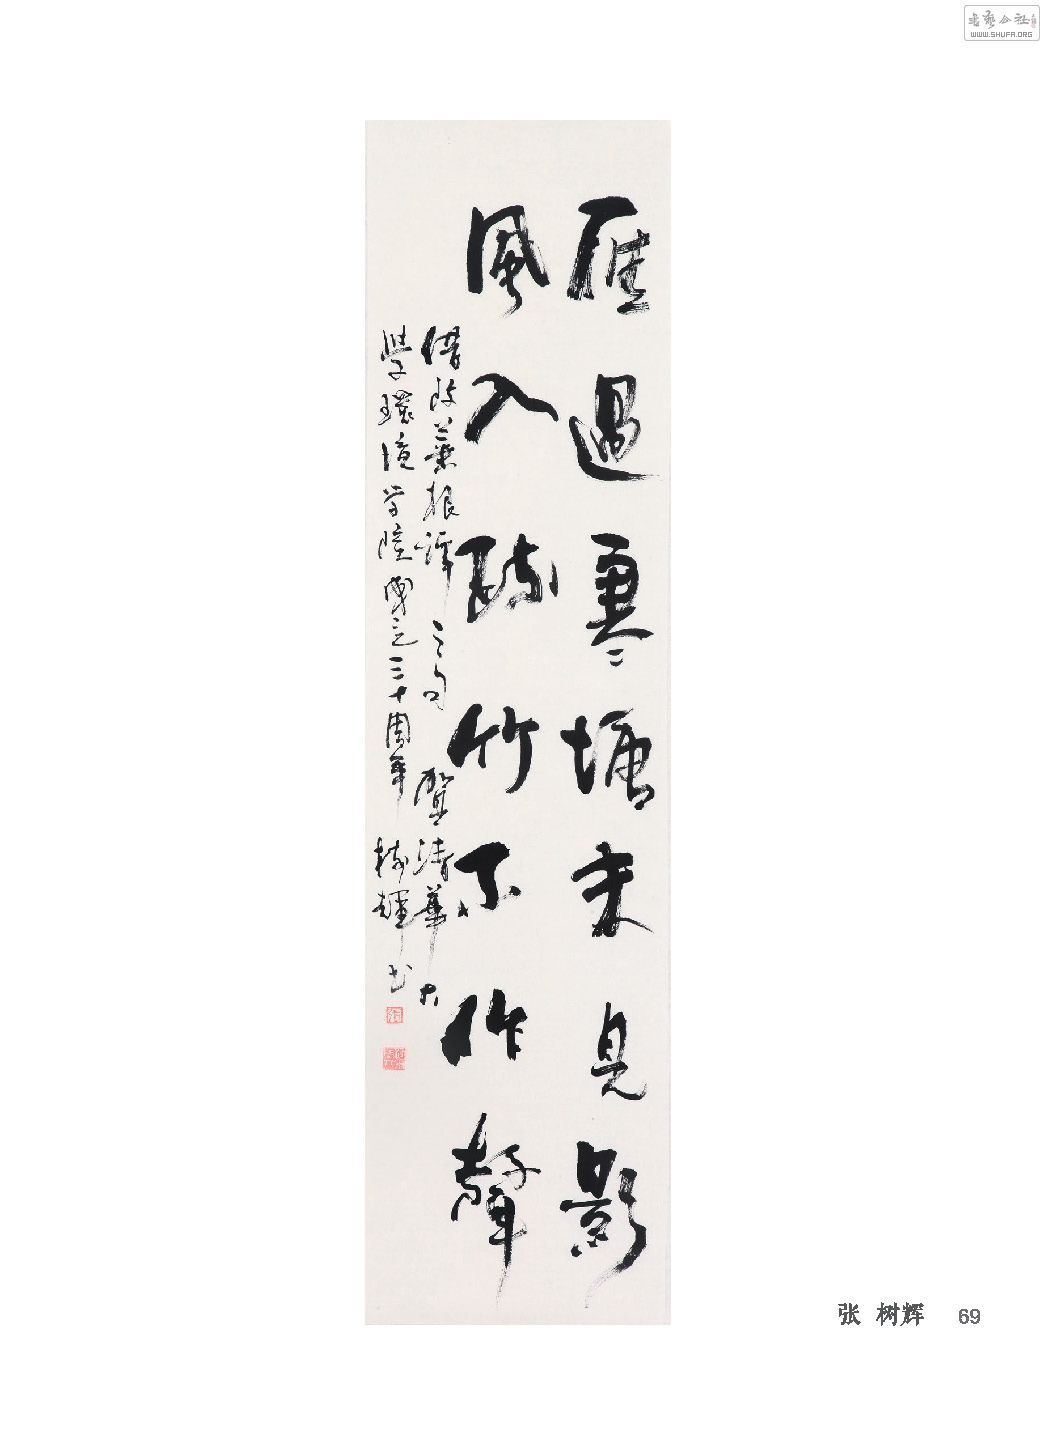 雁過寒塘未見影
風入疏竹不作聲
借改菜根譚之句 賀清華大
學環境学院成立三十周年 樹輝书
张 树辉 69
WWW.SHUFA.ORG